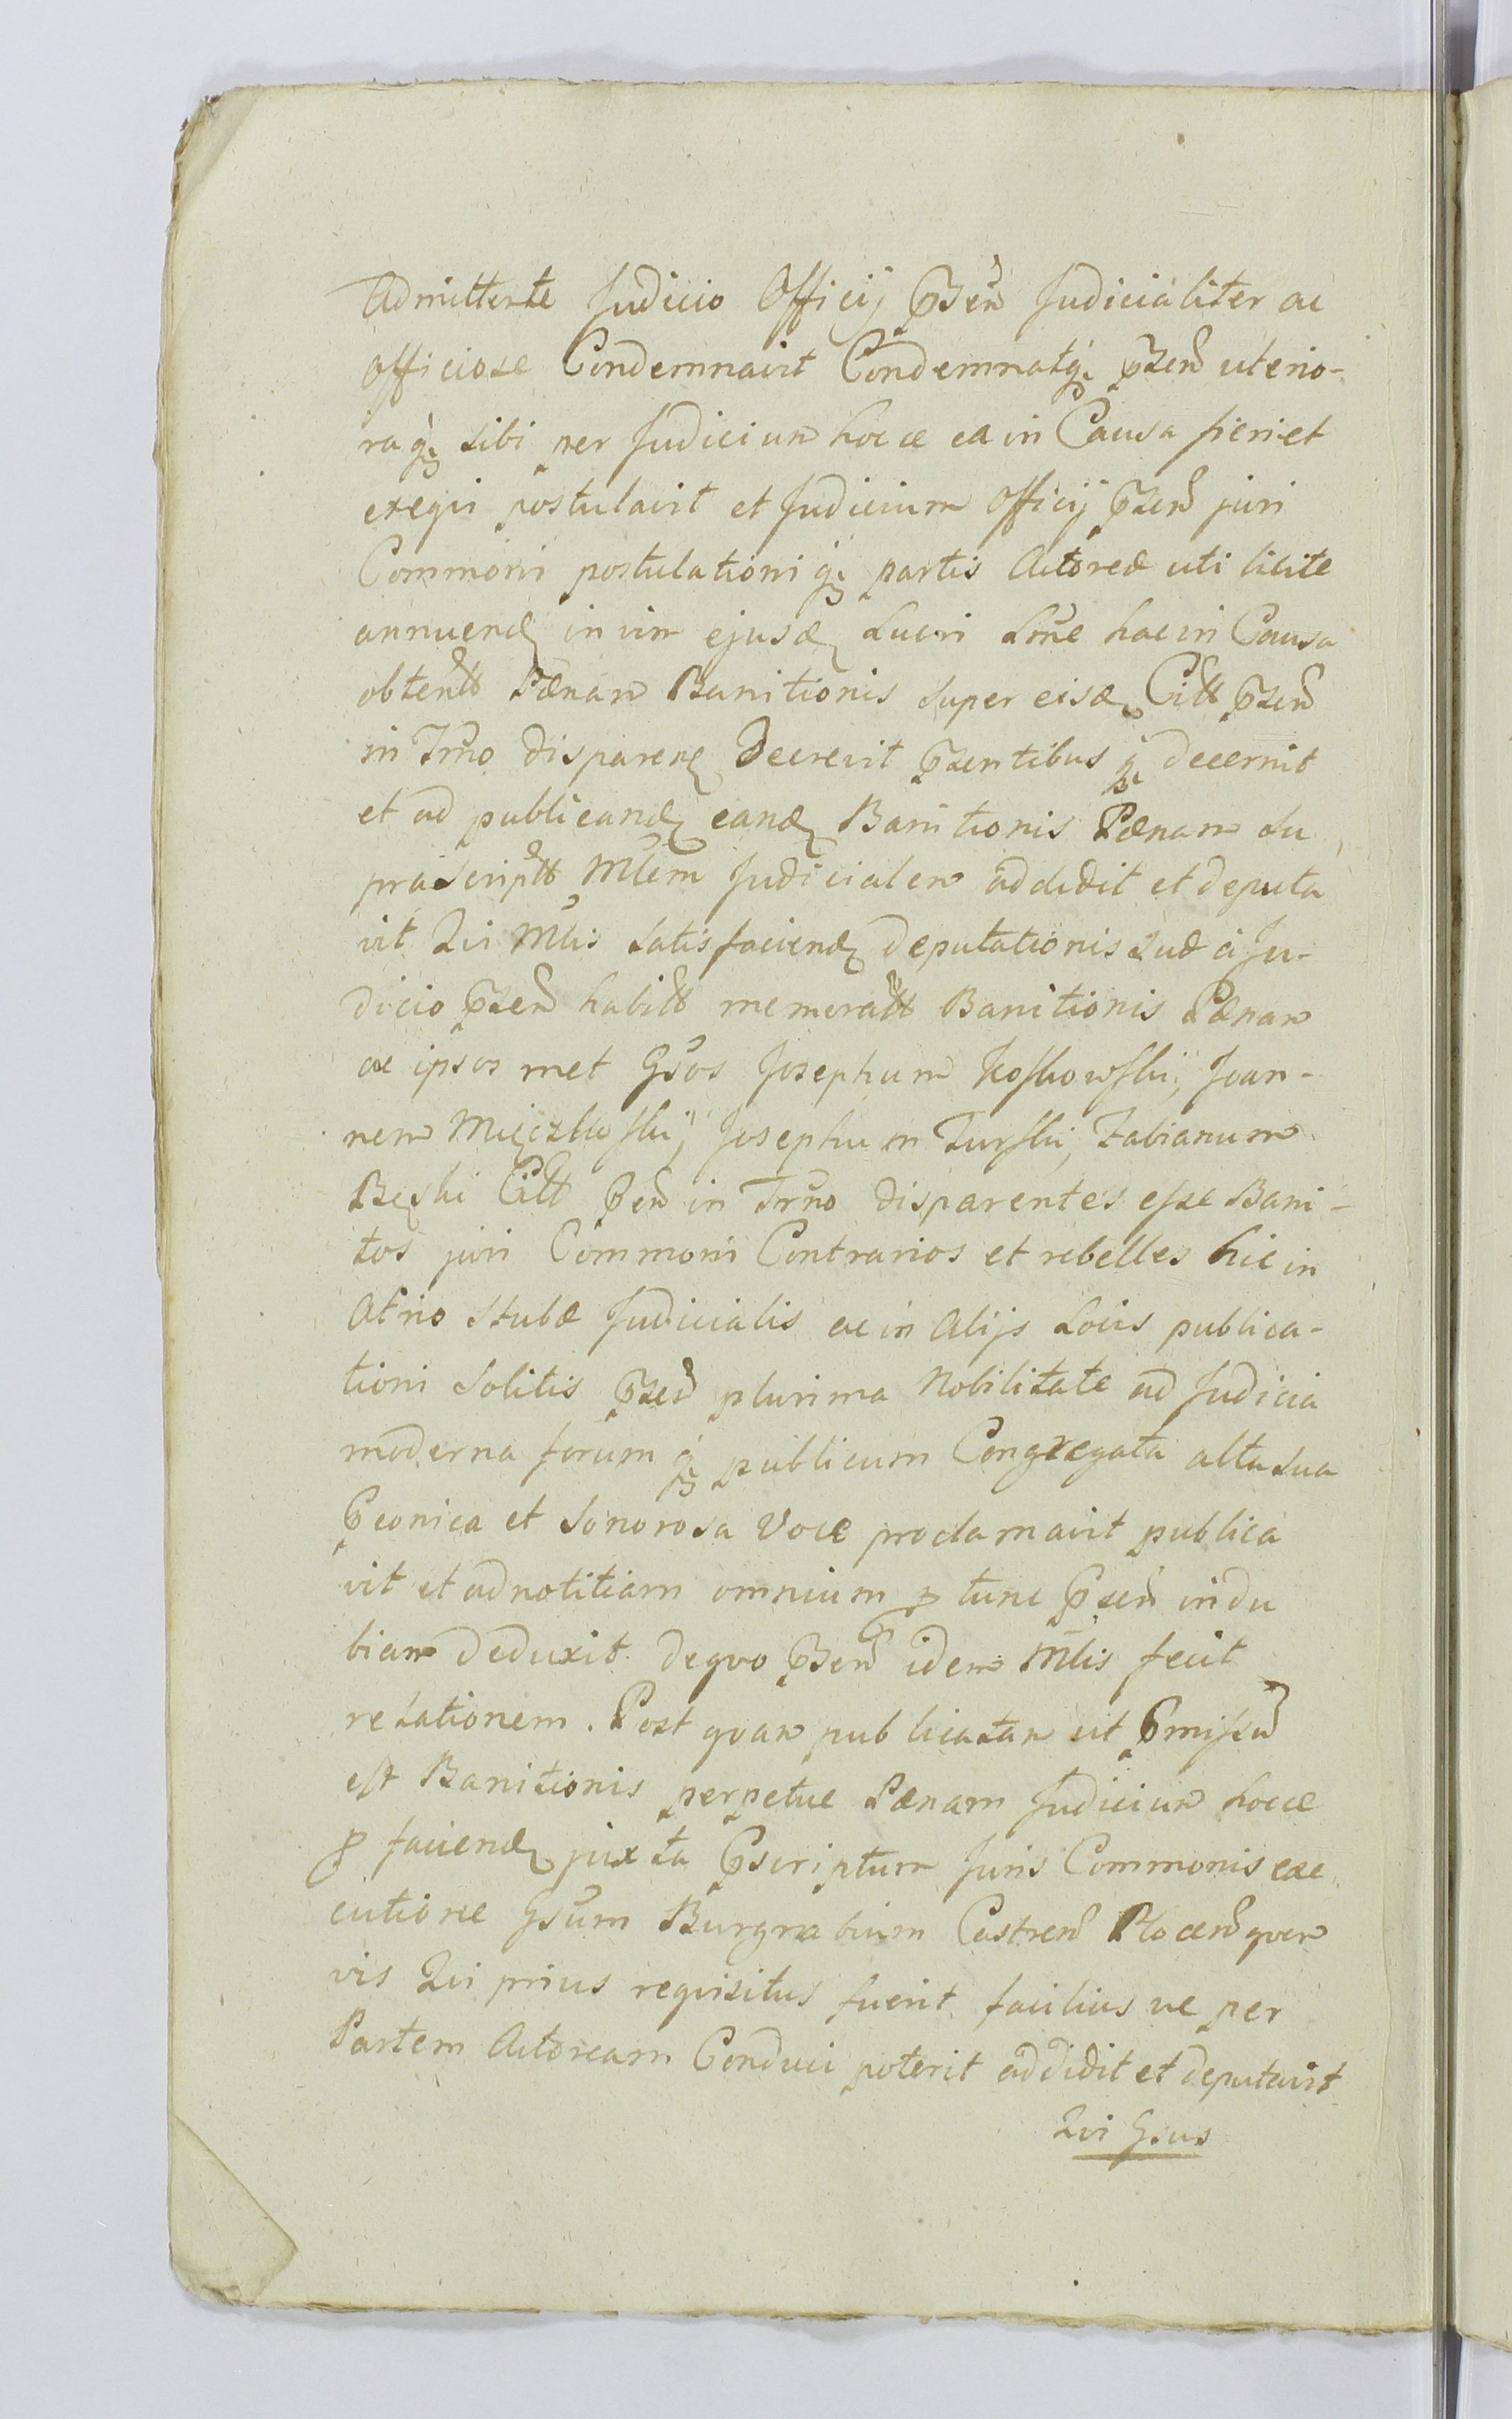 Admittente Judicio Officij Przen Judicialiter ac
officiose Condemnavit Condemnatq; przen uterio-
raq; sibi per Judicium hocce ea in Causa fieri et
exegvi postulavit et Judicium Officij przen juri
Commoni postulationi q; partis Actoreæ uti licite
annuend in vim ejusd Lucri Lrne hac in Causa
obtentt Pænam Banitionis super eisd Citt przen
in Trno disparen Decrevit przentibus q; decernit
et ad publicand eand Banitionis Pænam su
prascriptt Mlem Judicialem addidit et deputa
vit Qui Mlis satisfaciend deputationis suæ à Ju-
dicio przen habitt memoratt Banitionis Pænam
ac ipsos met Gsos Josephum Koskowskij, Joan-
nem Mięczkoskij, Josephum Turski, Fabianum
Bęski Citt Pen in Trno disparentes esse Bani-
tos juri Commoni Contrarios et rebelles hic in
Atrio Stubæ Judicialis ac in Alijs Locis publica-
tioni Solitis przen plurima Nobilitate ad Judicia
moderna forum q; publicum Congregata alta sua
Pconica et Sonorosa Voce proclamavit publica
vit et ad notitiam omnium p tunc Przen indu
biam deduxit de qvo Przen idem Mlis fecit
relationem. Post qvam publicatam ut Pmissu
est Banitionis perpetuæ Pænam Judicium hocce
p faciend juxta Pscriptum Juris Commonis exe
cutione Gsum Burgrabium Castren Plocen qvem
vis Qui prius reqvisitus fuerit facilius ve per
Partem Actoream Conduci poterit addidit et deputavit
Qui Gsus